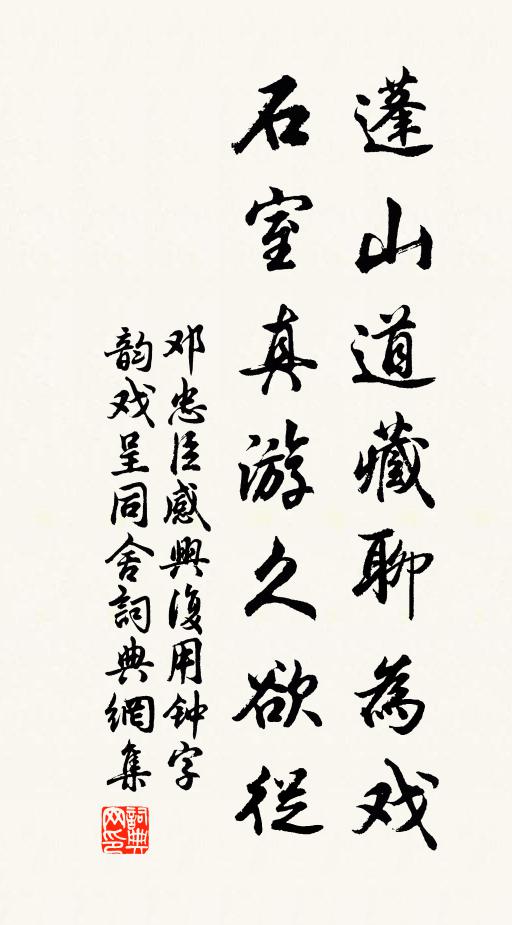 蓬山道藏聊為戏
石室真游久欲從
邓忠臣感興復用钟字
韵戏呈同舍詞典網集
詞典网印